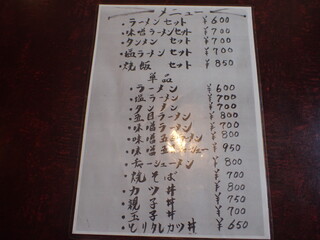 メニュー
・ラーメンセット ¥600
・味噌ラーメンセット ¥700
・タンメン セット ¥700
・塩ラーメン セット ¥700
・焼飯 セット ¥850
単品
・ラーメン ¥600
・塩ラーメン ¥700
・タンメン ¥700
・五目ラーメン ¥800
・味噌ラーメン ¥700
・味噌タンメン ¥800
・味噌 チャーシュー ¥950
・チャーシューメン ¥800
・焼そば ¥700
・カツ丼 ¥800
・親子丼 ¥750
・玉子丼 ¥700
・とりタレカツ丼 ¥650